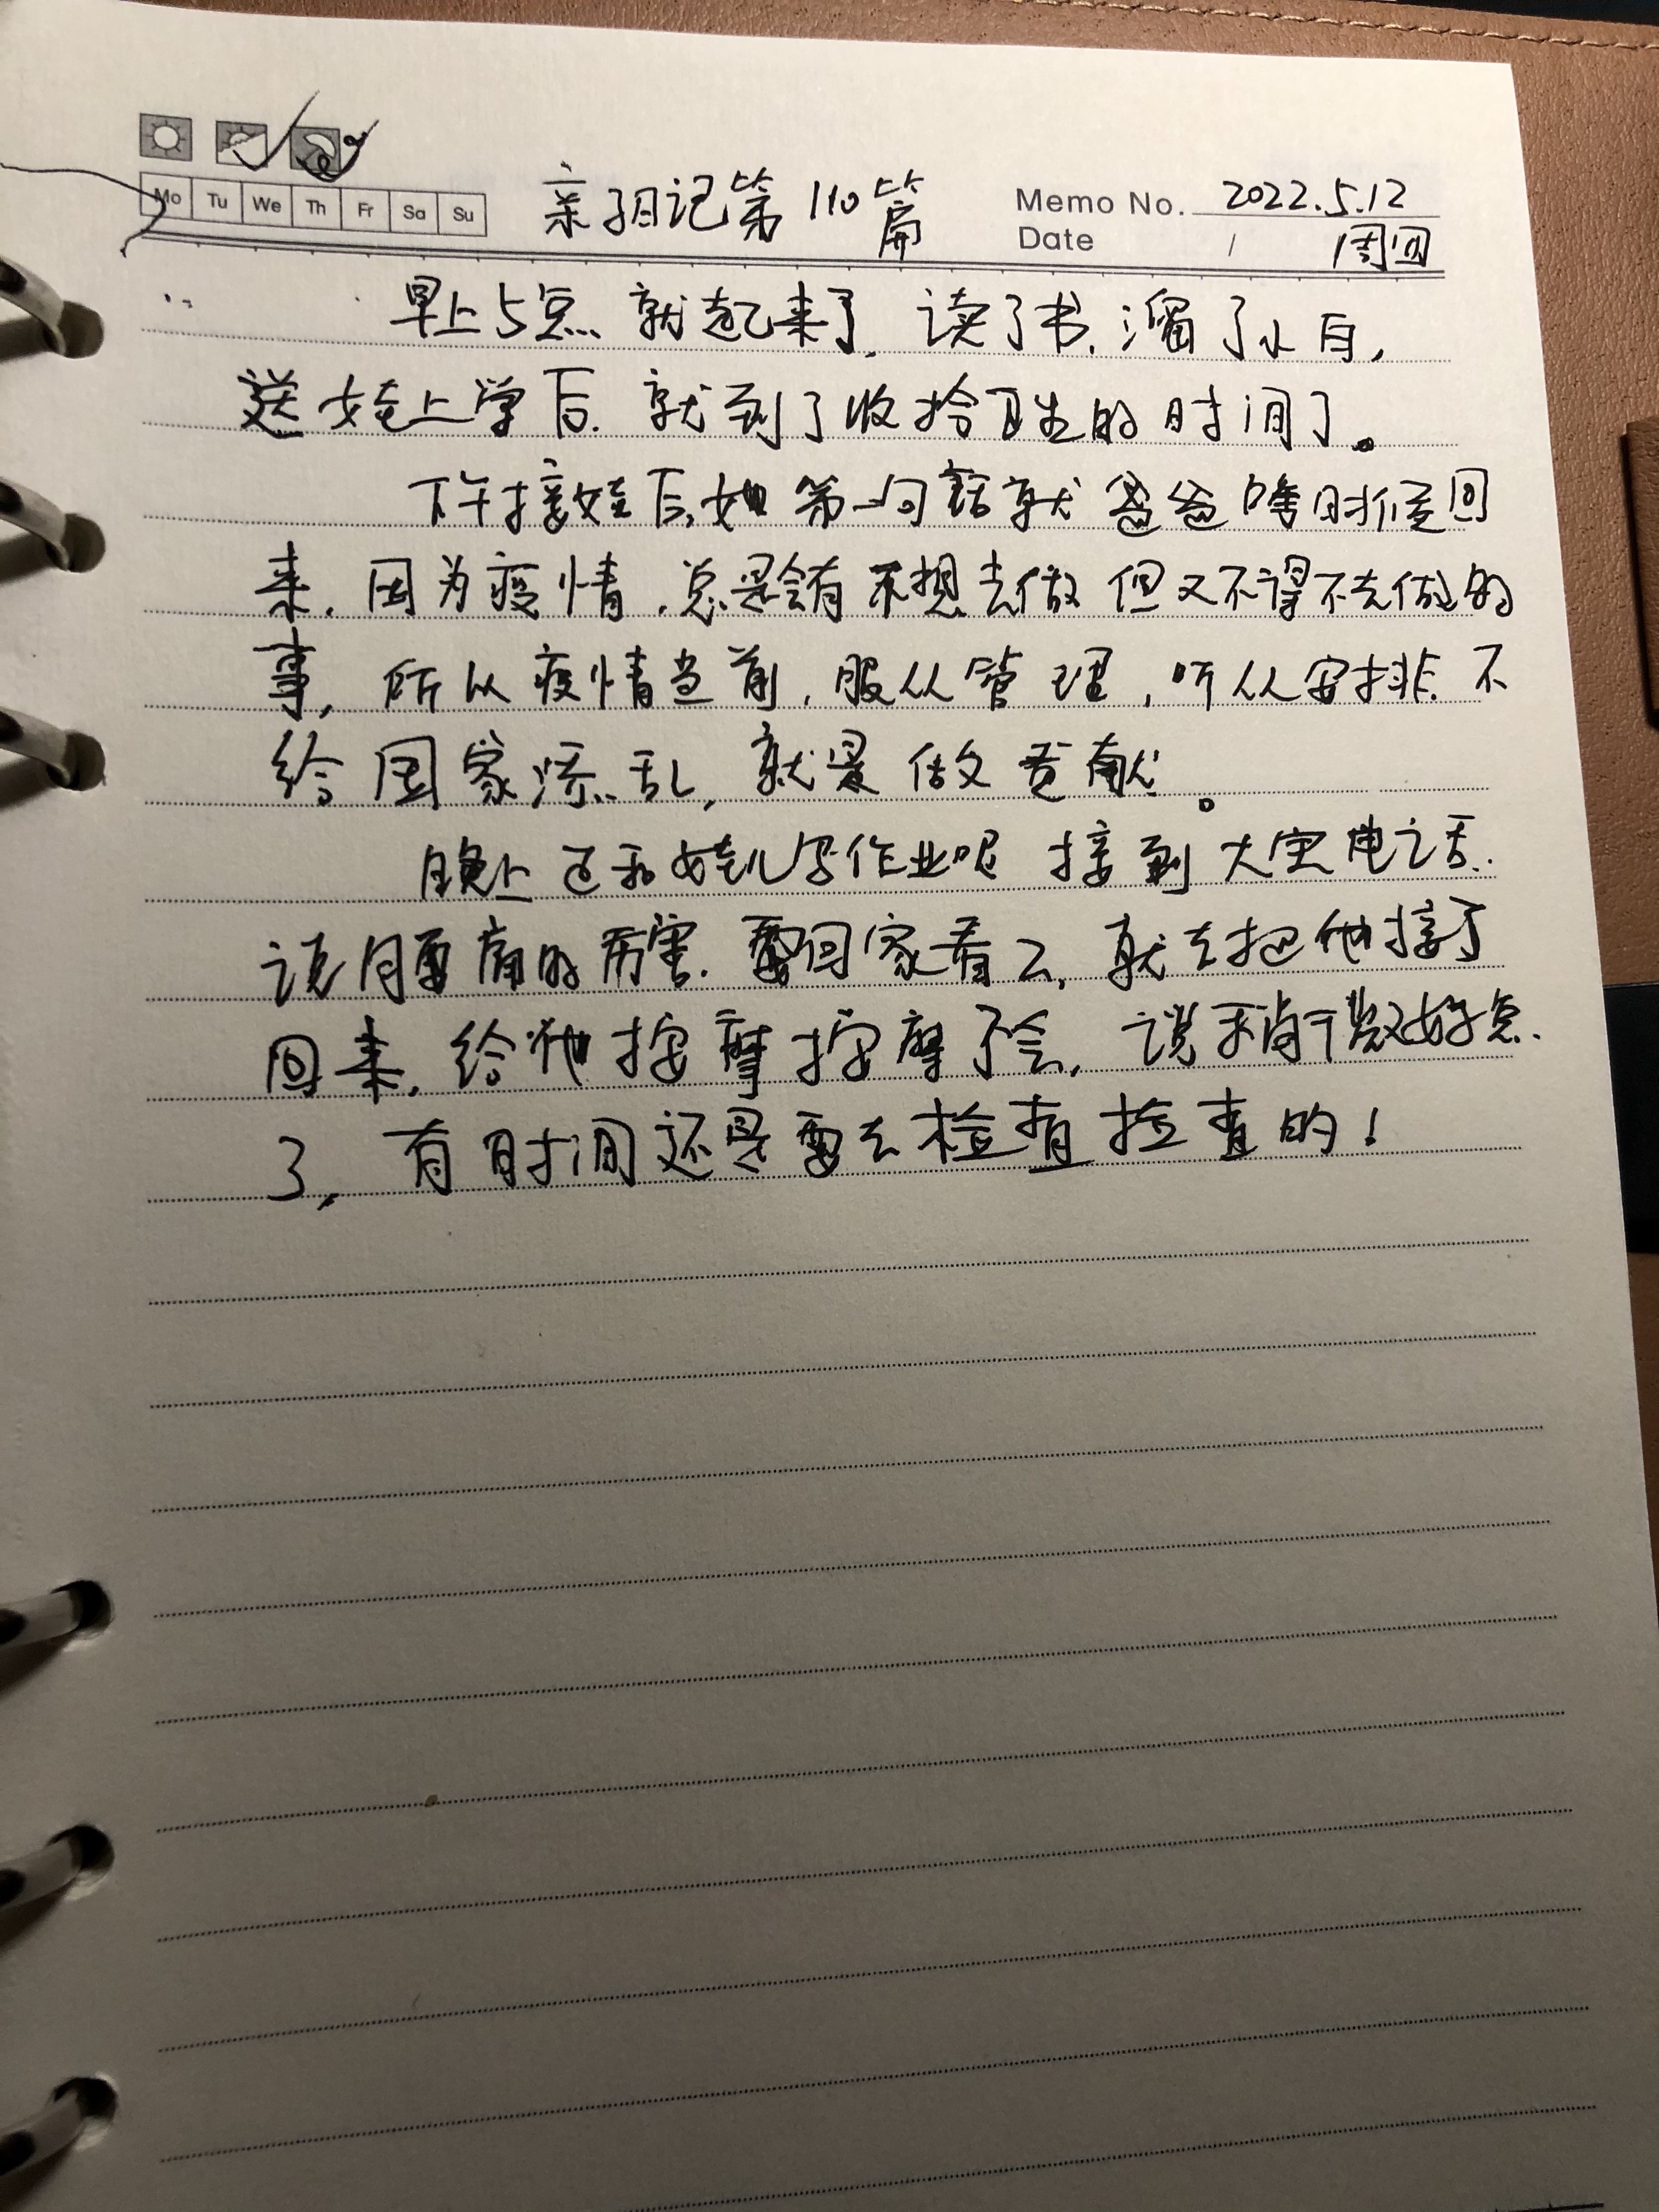 Mo Tu We Th Fr Sa Su
亲子日记第110篇
Memo No. 2022.5.12
Date / 周四
早上5点就起来了,读了书,溜了小白,
送娃上学后,就到了收拾卫生的时间了。
下午接娃后,她第一句话就爸爸啥时候回
来,因为疫情,总是会有不想去做但又不得不去做的
事,所以疫情当前,服从管理,听从安排,不
给国家添乱,就是做贡献。
晚上还和娃儿写作业呢 接到大宝电话,
说腰痛的厉害,要回家看看,就去把他接了
回来,给他按摩按摩了会,说稍微好点
了,有时间还是要去检查检查的!